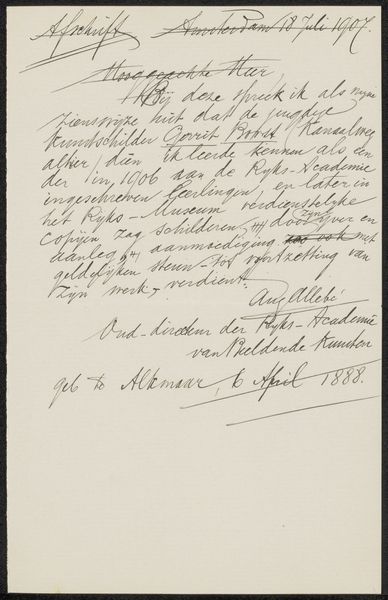 Afschrift Amsterdam 18 Juli 1907.
Hooggeachte Heer,
Bij deze spreek ik als mijne
zienswijze uit dat de jeugdige
kunstschilder Gerrit Kanaalweg
alhier, dien ik leerde kennen als een
der in 1906 aan de Ryks-Academie
ingeschreven leerlingen, en later in
het Ryks-Museum verdienstelyke
copijen zag schilderen, door zijn yver en
aanleg aanmoediging zoo ook met
geldelyken steun tot voortzetting van
zijn werk, verdient.
Aug Allebé
Oud-directeur der Ryks-Academie
van Beeldende Kunsten
geb te Alkmaar, 6 April 1888.